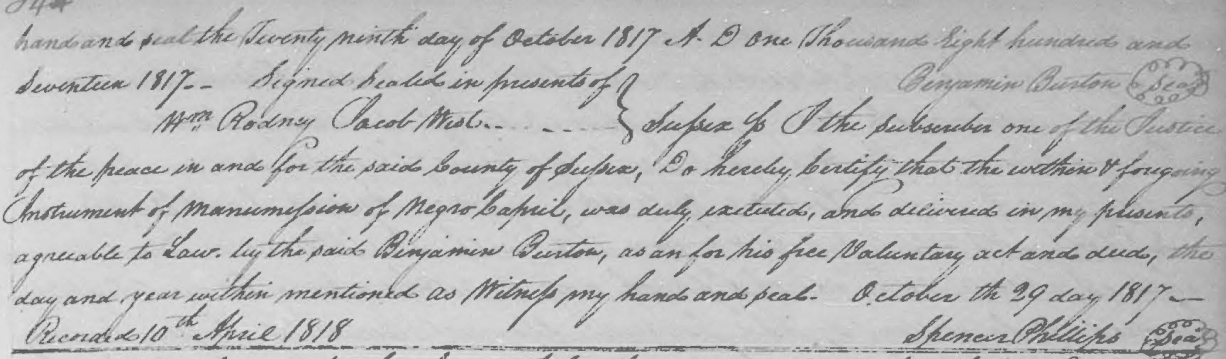 hand and seal the Twenty ninth day of October 1817 A. D One Thousand Eight hundred and
Seventeen 1817-- Signed Sealed in presents of } Benjamin Burton (Seal)
Wm Rodney Jacob West------- } Sussex ss I the Subscriber one of the Justice
of the peace in and for the said County of Sussex, Do hereby Certify that the within & foregoing
Instrument of Manumission of Negro Capril, was duly excuted, and delivered in my presents,
agreeable to Law. by the said Benjamin Burton, as an for his free Valuntary act and deed, the
day and year within mentioned as Witness my hand and seal- October th 29 day 1817—
Recorded 10th April 1818 Spencer Phillips (Seal)